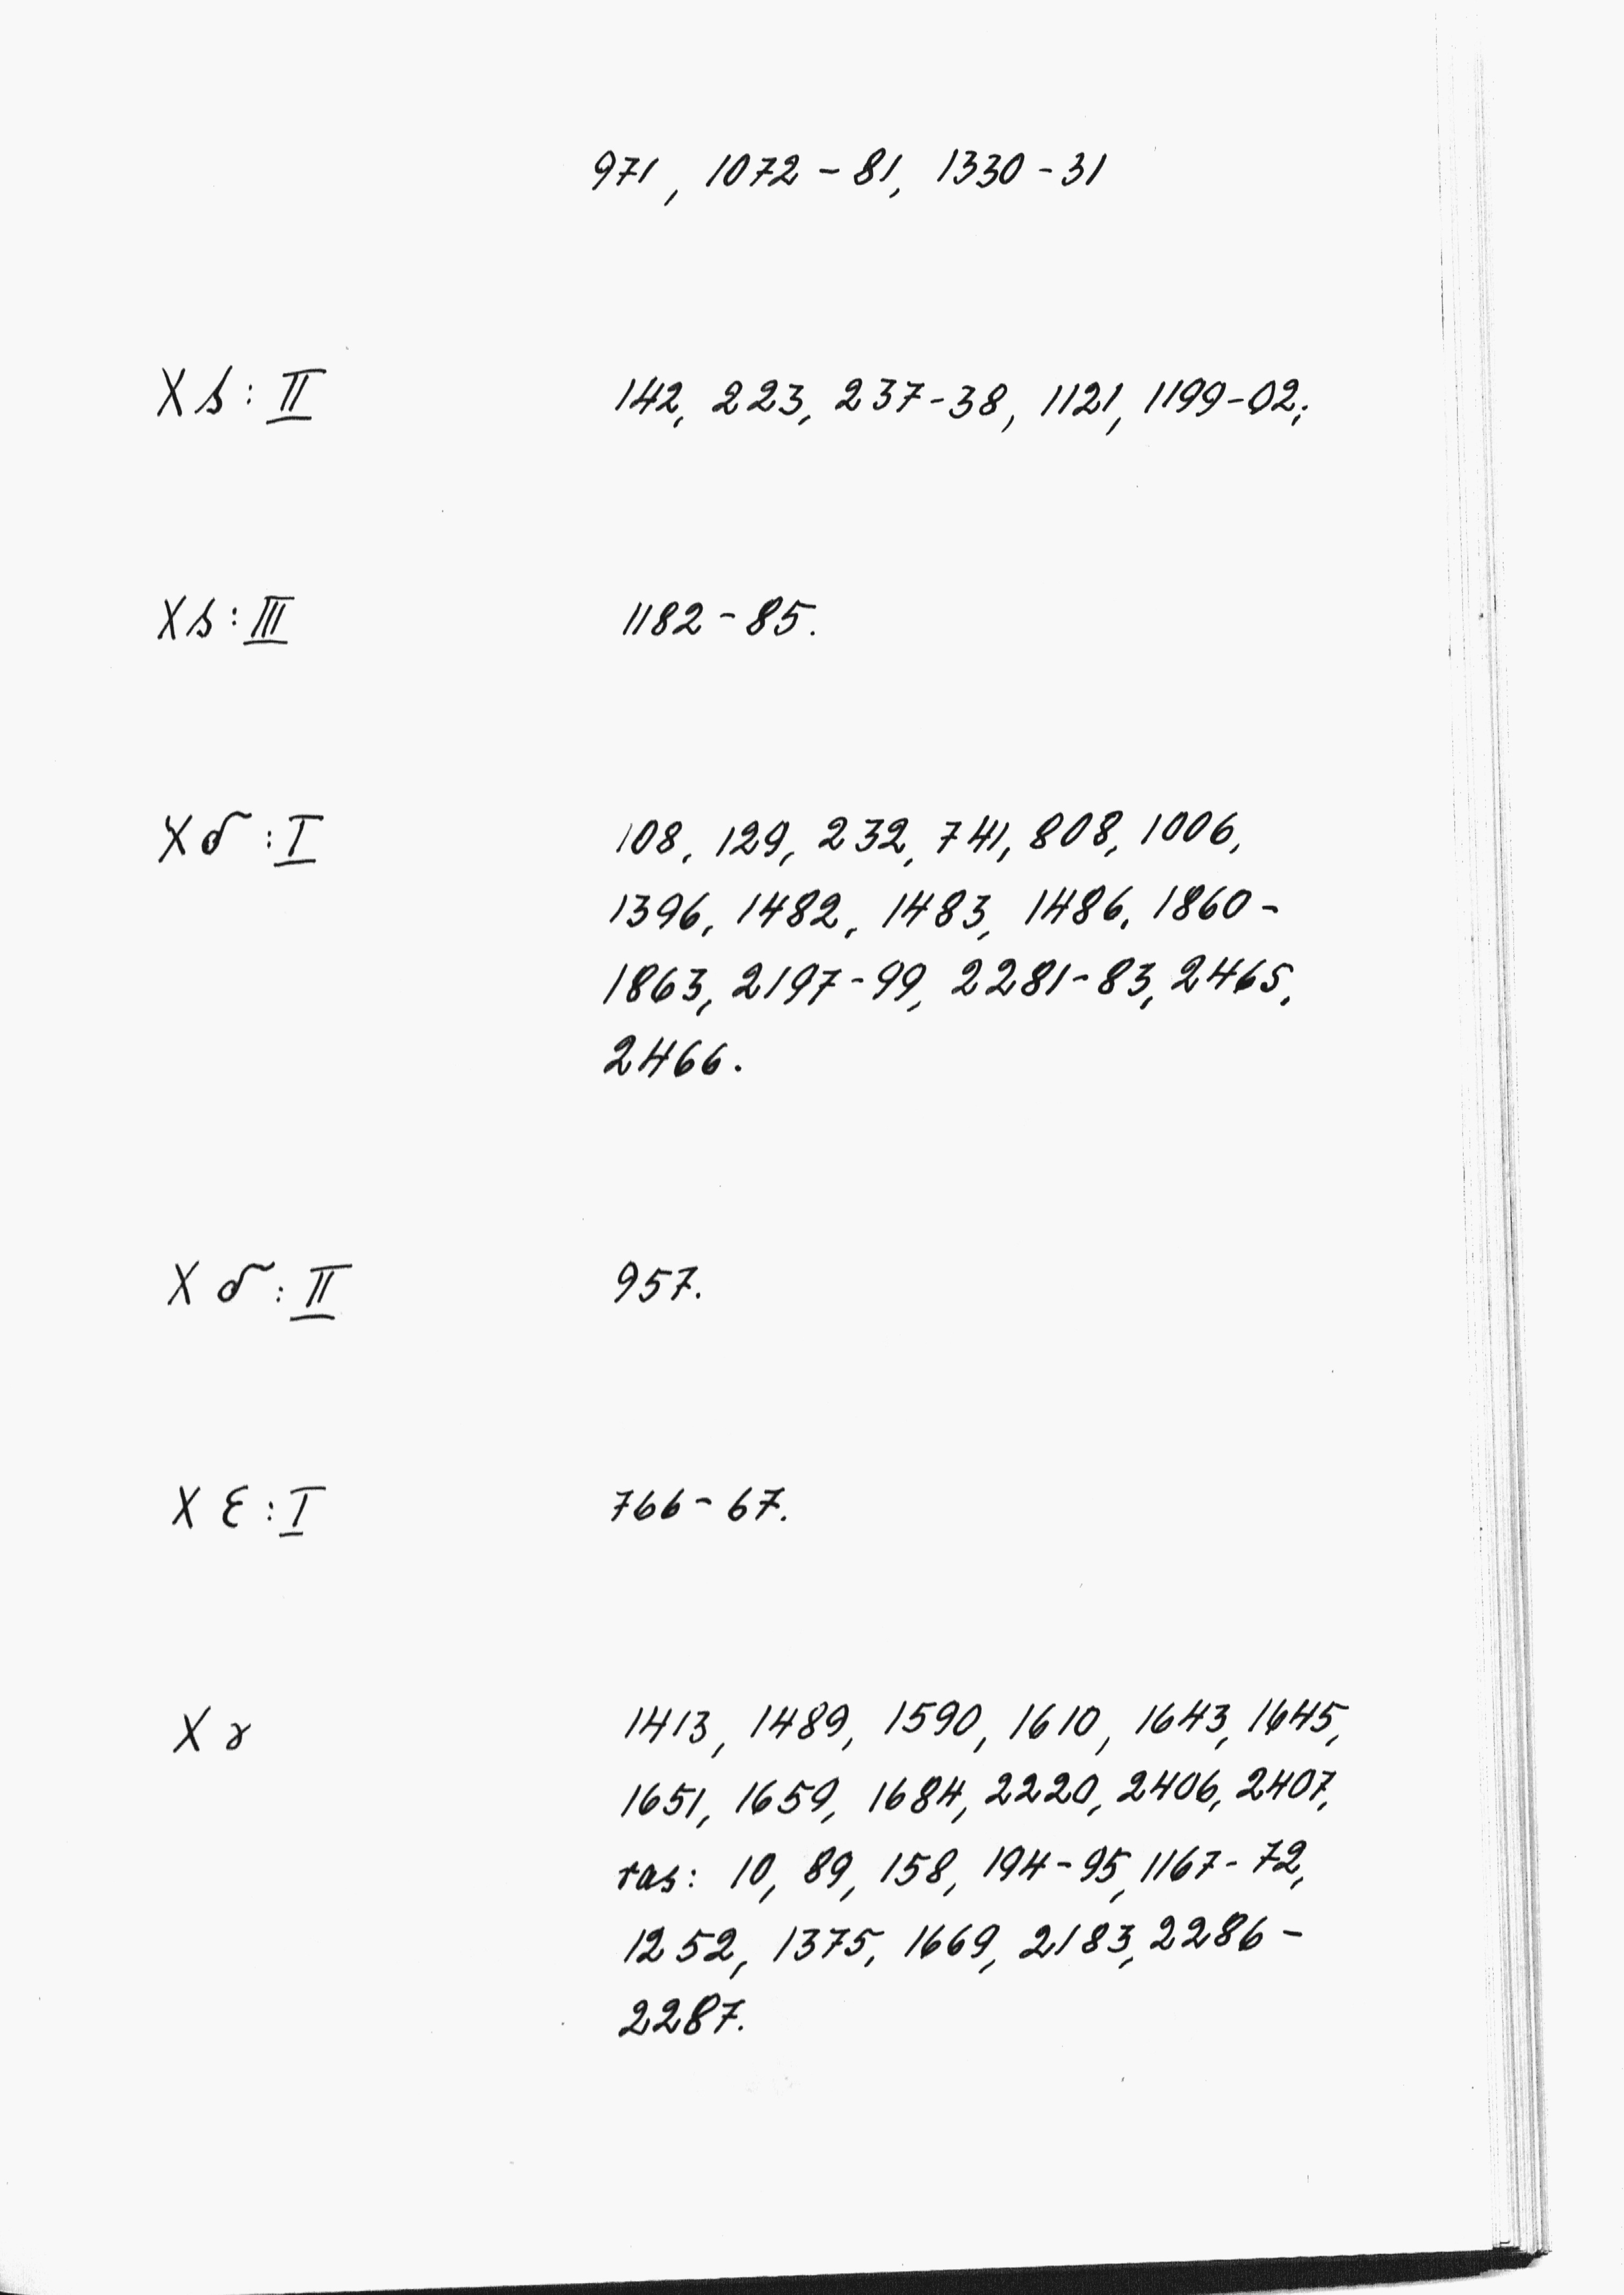 971, 1072-81, 1330-31
X s: II 142, 223, 237-38, 1121, 1199-02;
X s: III 1182-85.
X δ: I 108, 129, 232, 741, 808, 1006,
1396, 1482, 1483, 1486, 1860-
1863, 2197-99, 2281-83, 2465,
2466.
X δ: II 957.
X ε: I 766-67.
X γ 1413, 1489, 1590, 1610, 1643, 1645,
1651, 1659, 1684, 2220, 2406, 2407,
ras: 10, 89, 158, 194-95, 1167-72,
1252, 1375, 1669, 2183, 2286-
2287.